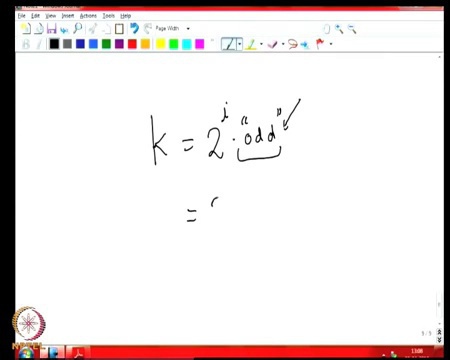 File Edit View Insert Actions Tools Help
Page Width
B
k = 2^i · "odd"
=
5/5
NPTEL
13:08